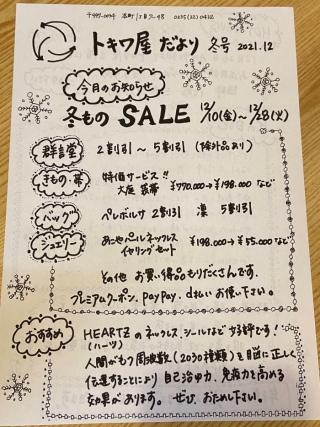 〒997-0034 本町1丁目7-48 0235(22)0412
トキワ屋 だより 冬号 2021.12
今月のお知らせ
冬もの SALE 12/10(金)〜12/28(火)
群言堂 2割引〜5割引(除外品あり)
きもの・帯 特価サービス!!
大庭 袋帯 ¥770.000→¥198.000 など
バッグ ペレボルサ 2割引 凛 5割引
ジュエリー あこやパールネックレス ¥198.000→¥55.000など
イヤリングセット
その他 お買い得品もりだくさんです.
プレミアムクーポン. paypay. d払い お使い下さい。
おすすめ HEARTZのネックレス、シールまでど 好評です!
(ハーツ)
人間がもつ周波数(2030種類)を脳に正しく
伝達することにより 自己治ゆ力、免疫力を高める
効果があります。 ぜひ、おためし下さい。